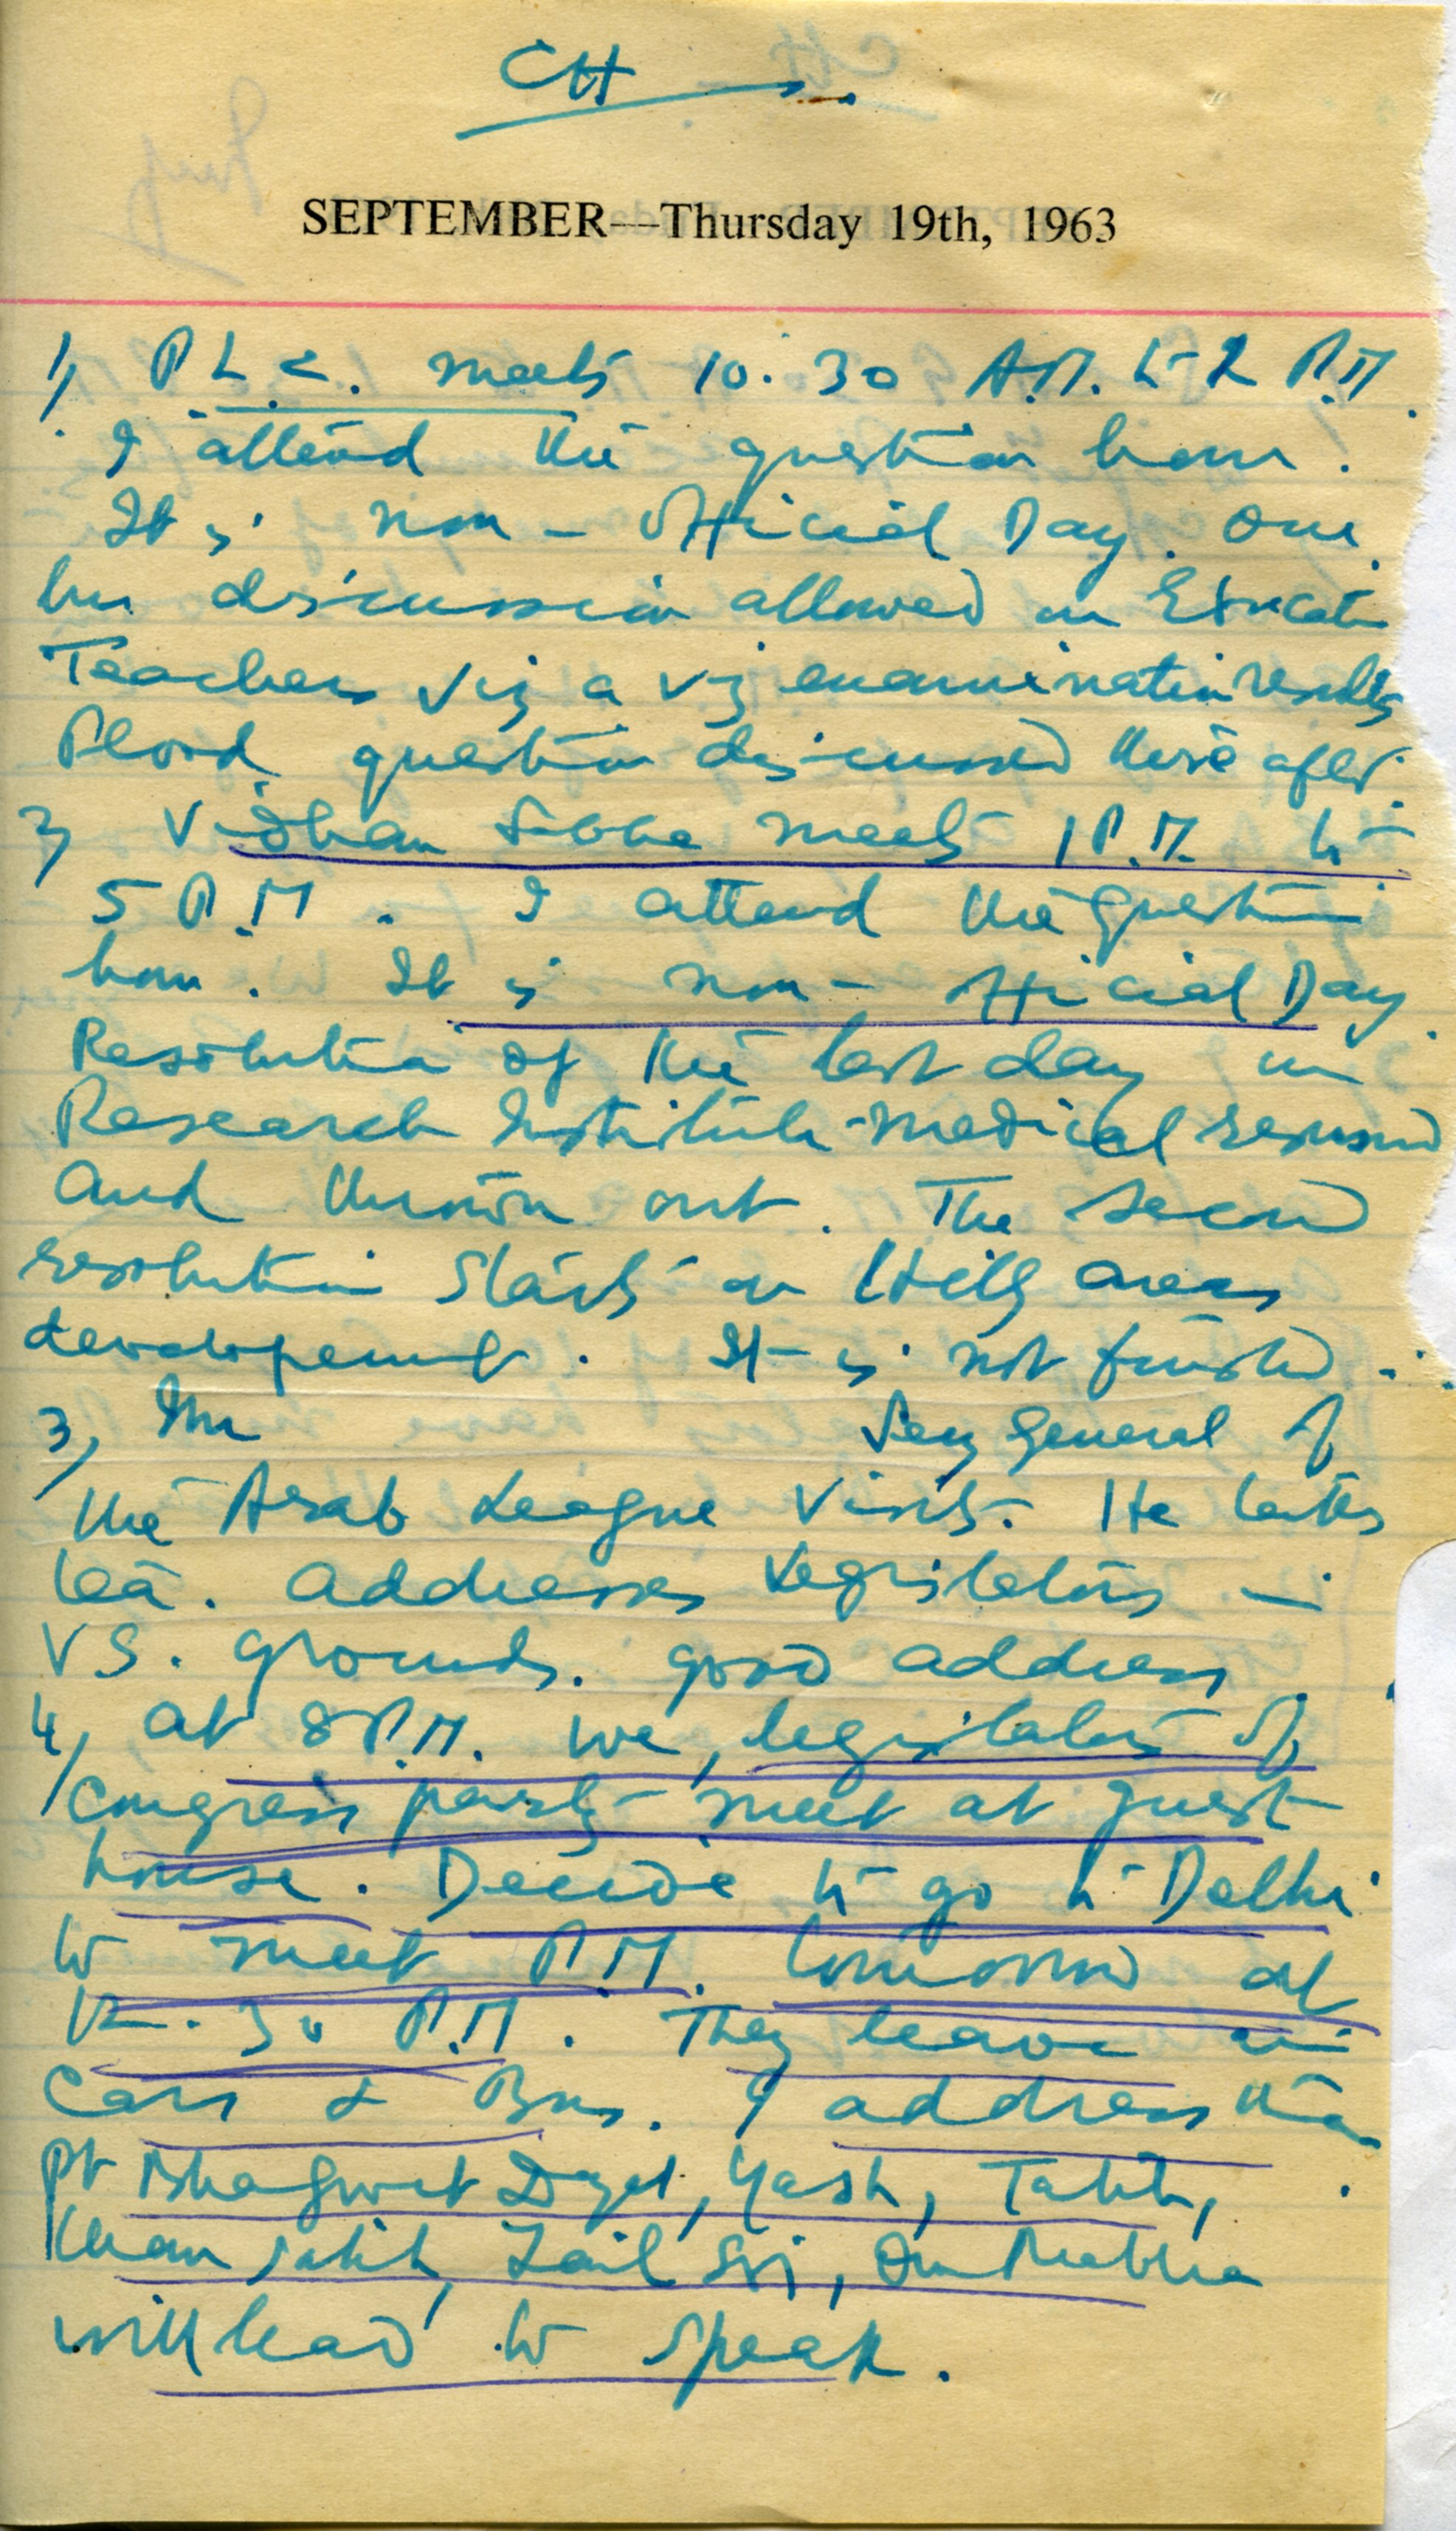 CH
SEPTEMBER—Thursday 19th, 1963
1, P.L.C. meets 10.30 A.M. to 2 P.M.
I attend the question hour.
It is non-official Day. One
hr discussion allowed on Education
Teachers viz a viz examination results
Flood question discussed there after.
2, Vidhan Sabha meets 1 P.M. to
5 P.M. I attend the question
hour. It is non-official Day.
Resolution of the last day on
Research Institute-medical resumed
and thrown out. The second
resolution starts on Hilly areas
developement. It is not finished.
3, Mr Secy General of
the Arab League visits. He takes
tea. Addresses Legislators in
VS. grounds. good address.
4, at 8 P.M. we, legislators of
Congress party meet at guest
house. Decide to go to Delhi
to meet P.M. tomorrow at
12.30 P.M. They leave in
Cars & Bus. I address them
Pt Bhagwat Dayal, Yash, Talib,
Khan sahib, Zail Singh, Om Prabha
will lead to speak.